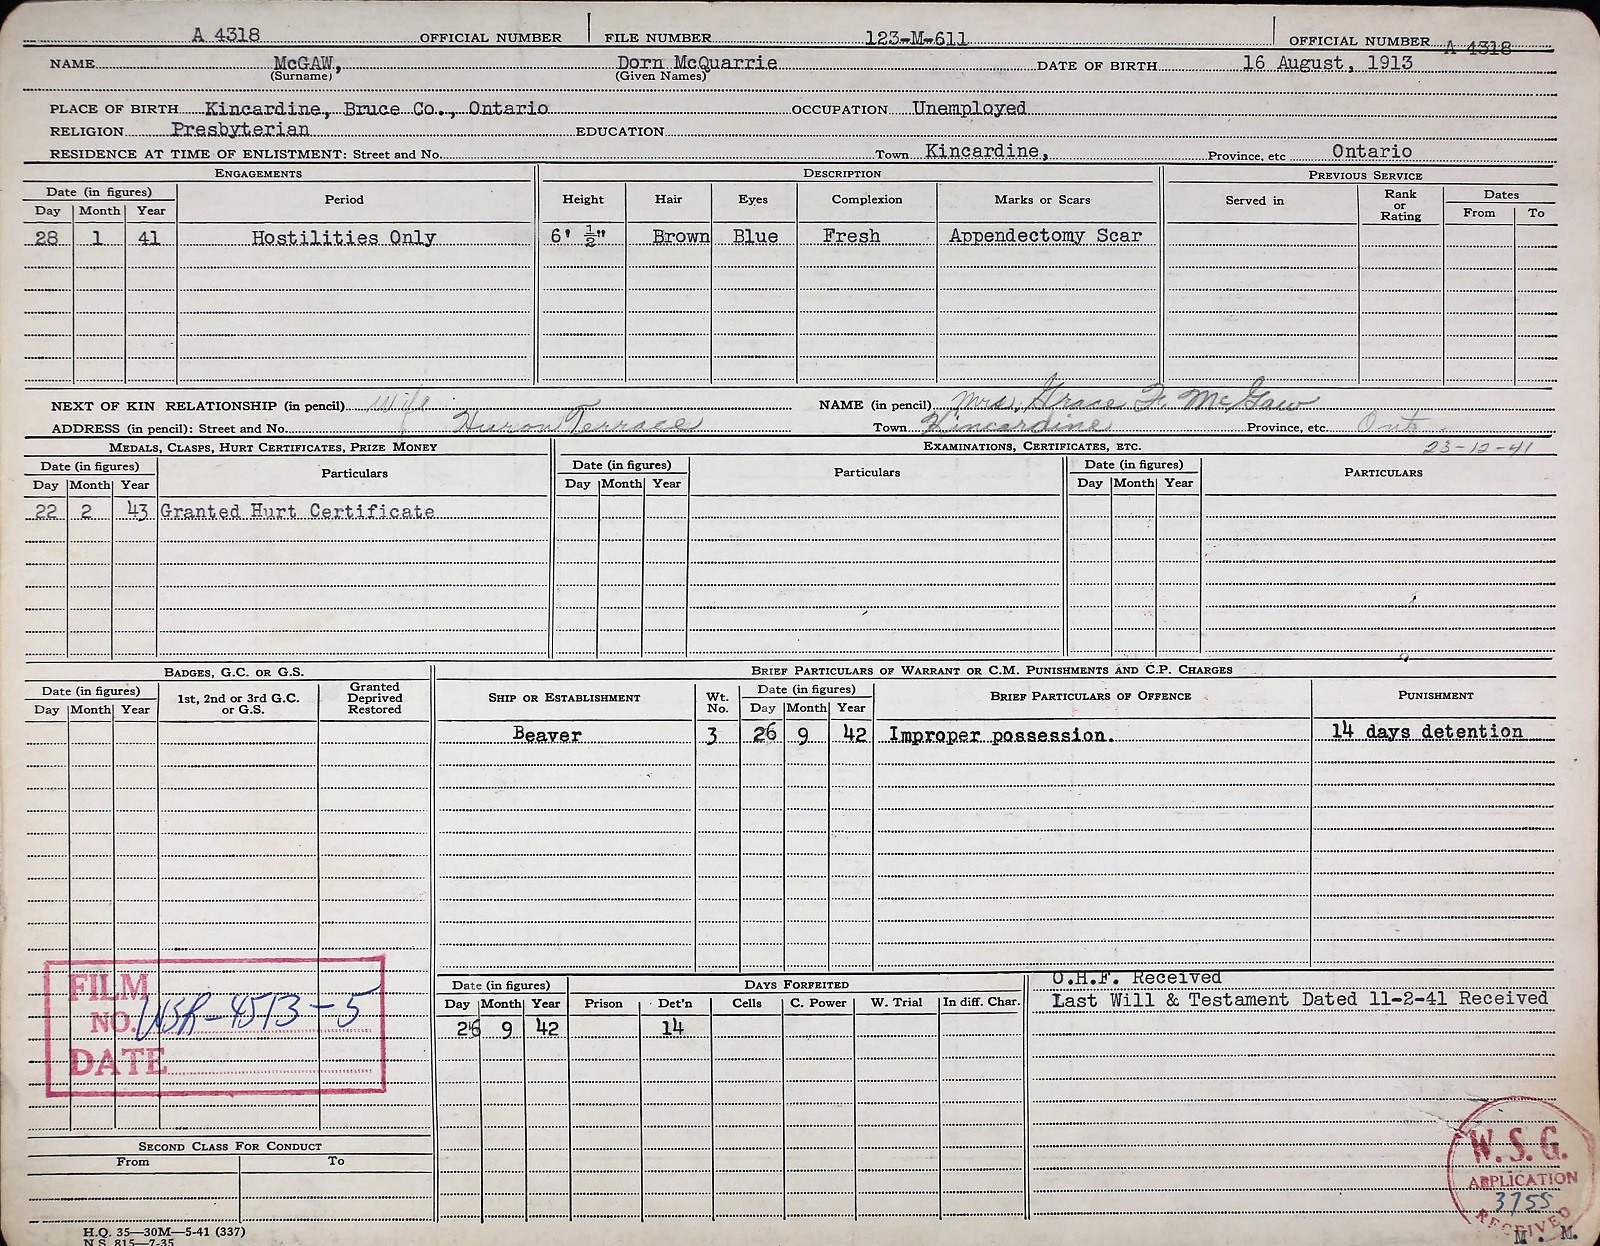 A 4318 OFFICIAL NUMBER FILE NUMBER 123-M-611 OFFICIAL NUMBER A 4318
NAME McGAW, Dorn McQuarrie DATE OF BIRTH 16 August, 1913
(Surname) (Given Names)
PLACE OF BIRTH Kincardine, Bruce Co., Ontario OCCUPATION Unemployed
RELIGION Presbyterian EDUCATION
RESIDENCE AT TIME OF ENLISTMENT: Street and No. Town Kincardine, Province, etc Ontario
ENGAGEMENTS DESCRIPTION PREVIOUS SERVICE
Date (in figures) Period Height Hair Eyes Complexion Marks or Scars Served in Rank or Rating Dates
Day Month Year From To
28 1 41 Hostilities Only 6' ½" Brown Blue Fresh Appendectomy Scar
NEXT OF KIN RELATIONSHIP (in pencil) Wife NAME (in pencil) Mrs. Grace F. McGaw
ADDRESS (in pencil): Street and No. Huron Terrace Town Kincardine Province, etc. Ont.
23-12-41
MEDALS, CLASPS, HURT CERTIFICATES, PRIZE MONEY EXAMINATIONS, CERTIFICATES, ETC.
Date (in figures) Particulars Date (in figures) Particulars Date (in figures) PARTICULARS
Day Month Year Day Month Year Day Month Year
22 2 43 Granted Hurt Certificate
BADGES, G.C. OR G.S. BRIEF PARTICULARS OF WARRANT OR C.M. PUNISHMENTS AND C.P. CHARGES
Date (in figures) 1st, 2nd or 3rd G.C. or G.S. Granted Deprived Restored SHIP OR ESTABLISHMENT Wt. No. Date (in figures) BRIEF PARTICULARS OF OFFENCE PUNISHMENT
Day Month Year Day Month Year
Beaver 3 26 9 42 Improper possession. 14 days detention
FILM
NO. WSR-4513-5
DATE
Date (in figures) DAYS FORFEITED
Day Month Year Prison Det'n Cells C. Power W. Trial In diff. Char.
26 9 42 14
O.H.F. Received
Last Will & Testament Dated 11-2-41 Received
SECOND CLASS FOR CONDUCT
From To
W.S.G.
APPLICATION
3755
RECEIVED
M. M.
H.Q. 35—30M—5-41 (337)
N.S. 815—7-35